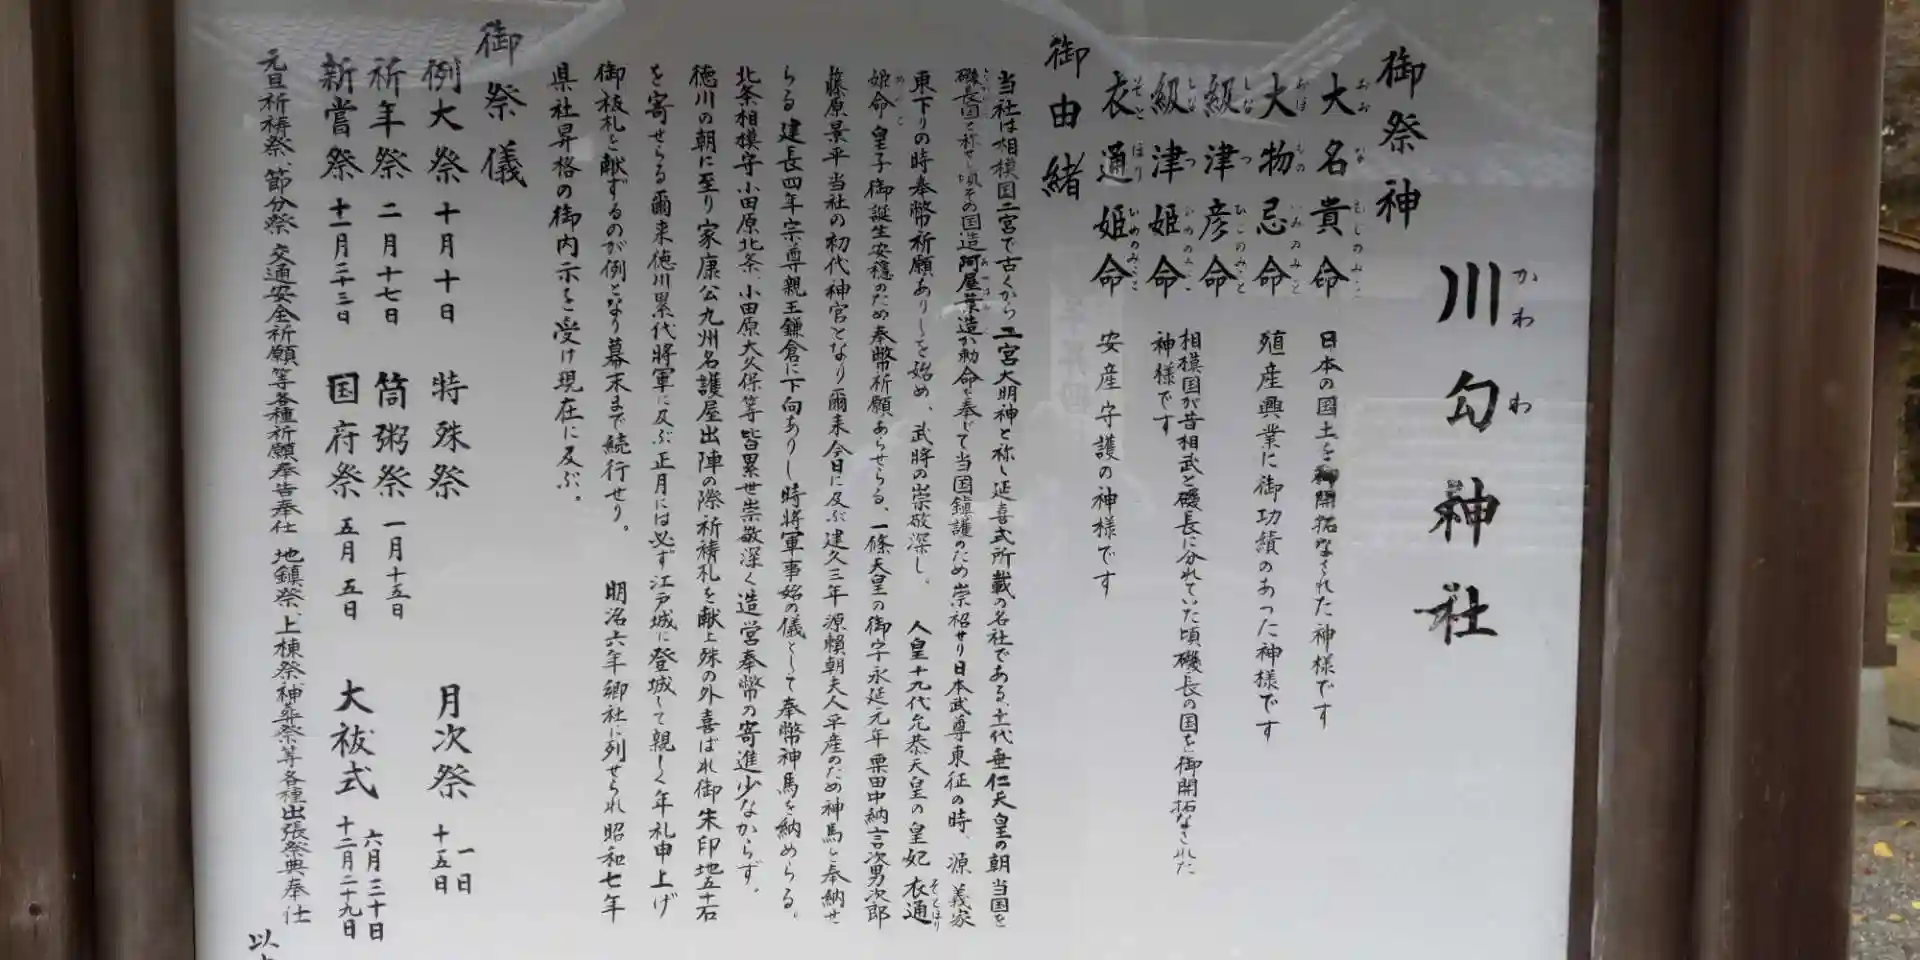 川勾神社
かわわ
御祭神
大名貴命 日本の国土を御開拓なされた神様です
大物忌命 殖産興業に御功績のあった神様です
級津彦命
級津姫命 相模国が昔相武と磯長に分れていた頃磯長の国を御開拓なされた
神様です
衣通姫命 安産守護の神様です
御由緒
当社は相模国二宮で古くから二宮大明神と称し延喜式所載の名社である、十一代垂仁天皇の朝当国を
磯長国と称せし頃その国造阿屋葉造が勅命を奉じて当国鎮護のため崇祀せり日本武尊東征の時、源義家
東下りの時奉幣祈願ありしを始め、武将の崇敬深し。 人皇十九代允恭天皇の皇妃衣通
姫命皇子御誕生安穏のため奉幣祈願あらせらる、一條天皇の御字永延元年粟田中納言次男次郎
藤原景平当社の初代神官となり爾来今日に及ぶ建久三年源頼朝夫人平産のため神馬を奉納せ
らる建長四年宗尊親王鎌倉に下向ありし時将軍事始の儀として奉幣神馬を納めらる。
北条相模守小田原北条、小田原大久保等皆累世崇敬深く造営奉幣の寄進少なからず。
徳川の朝に至り家康公九州名護屋出陣の際祈祷札を献上殊の外喜ばれ御朱印地五十石
を寄せらる爾来徳川累代将軍に及ぶ正月には必ず江戸城に登城して親しく年礼申上げ
御祓札を献ずるのが例となり幕末まで続行せり。 明治六年郷社に列せられ昭和七年
県社昇格の御内示を受け現在に及ぶ。
御祭儀
例大祭 十月十日 特殊祭 月次祭 一日 十五日
祈年祭 二月十七日 筒粥祭 一月十五日
新嘗祭 十一月二十三日 国府祭 五月五日 大祓式 六月三十日 十二月二十九日
元旦祈祷祭 節分祭 交通安全祈願等各種祈願奉告奉仕 地鎮祭、上棟祭、神葬祭等各種出張祭典奉仕